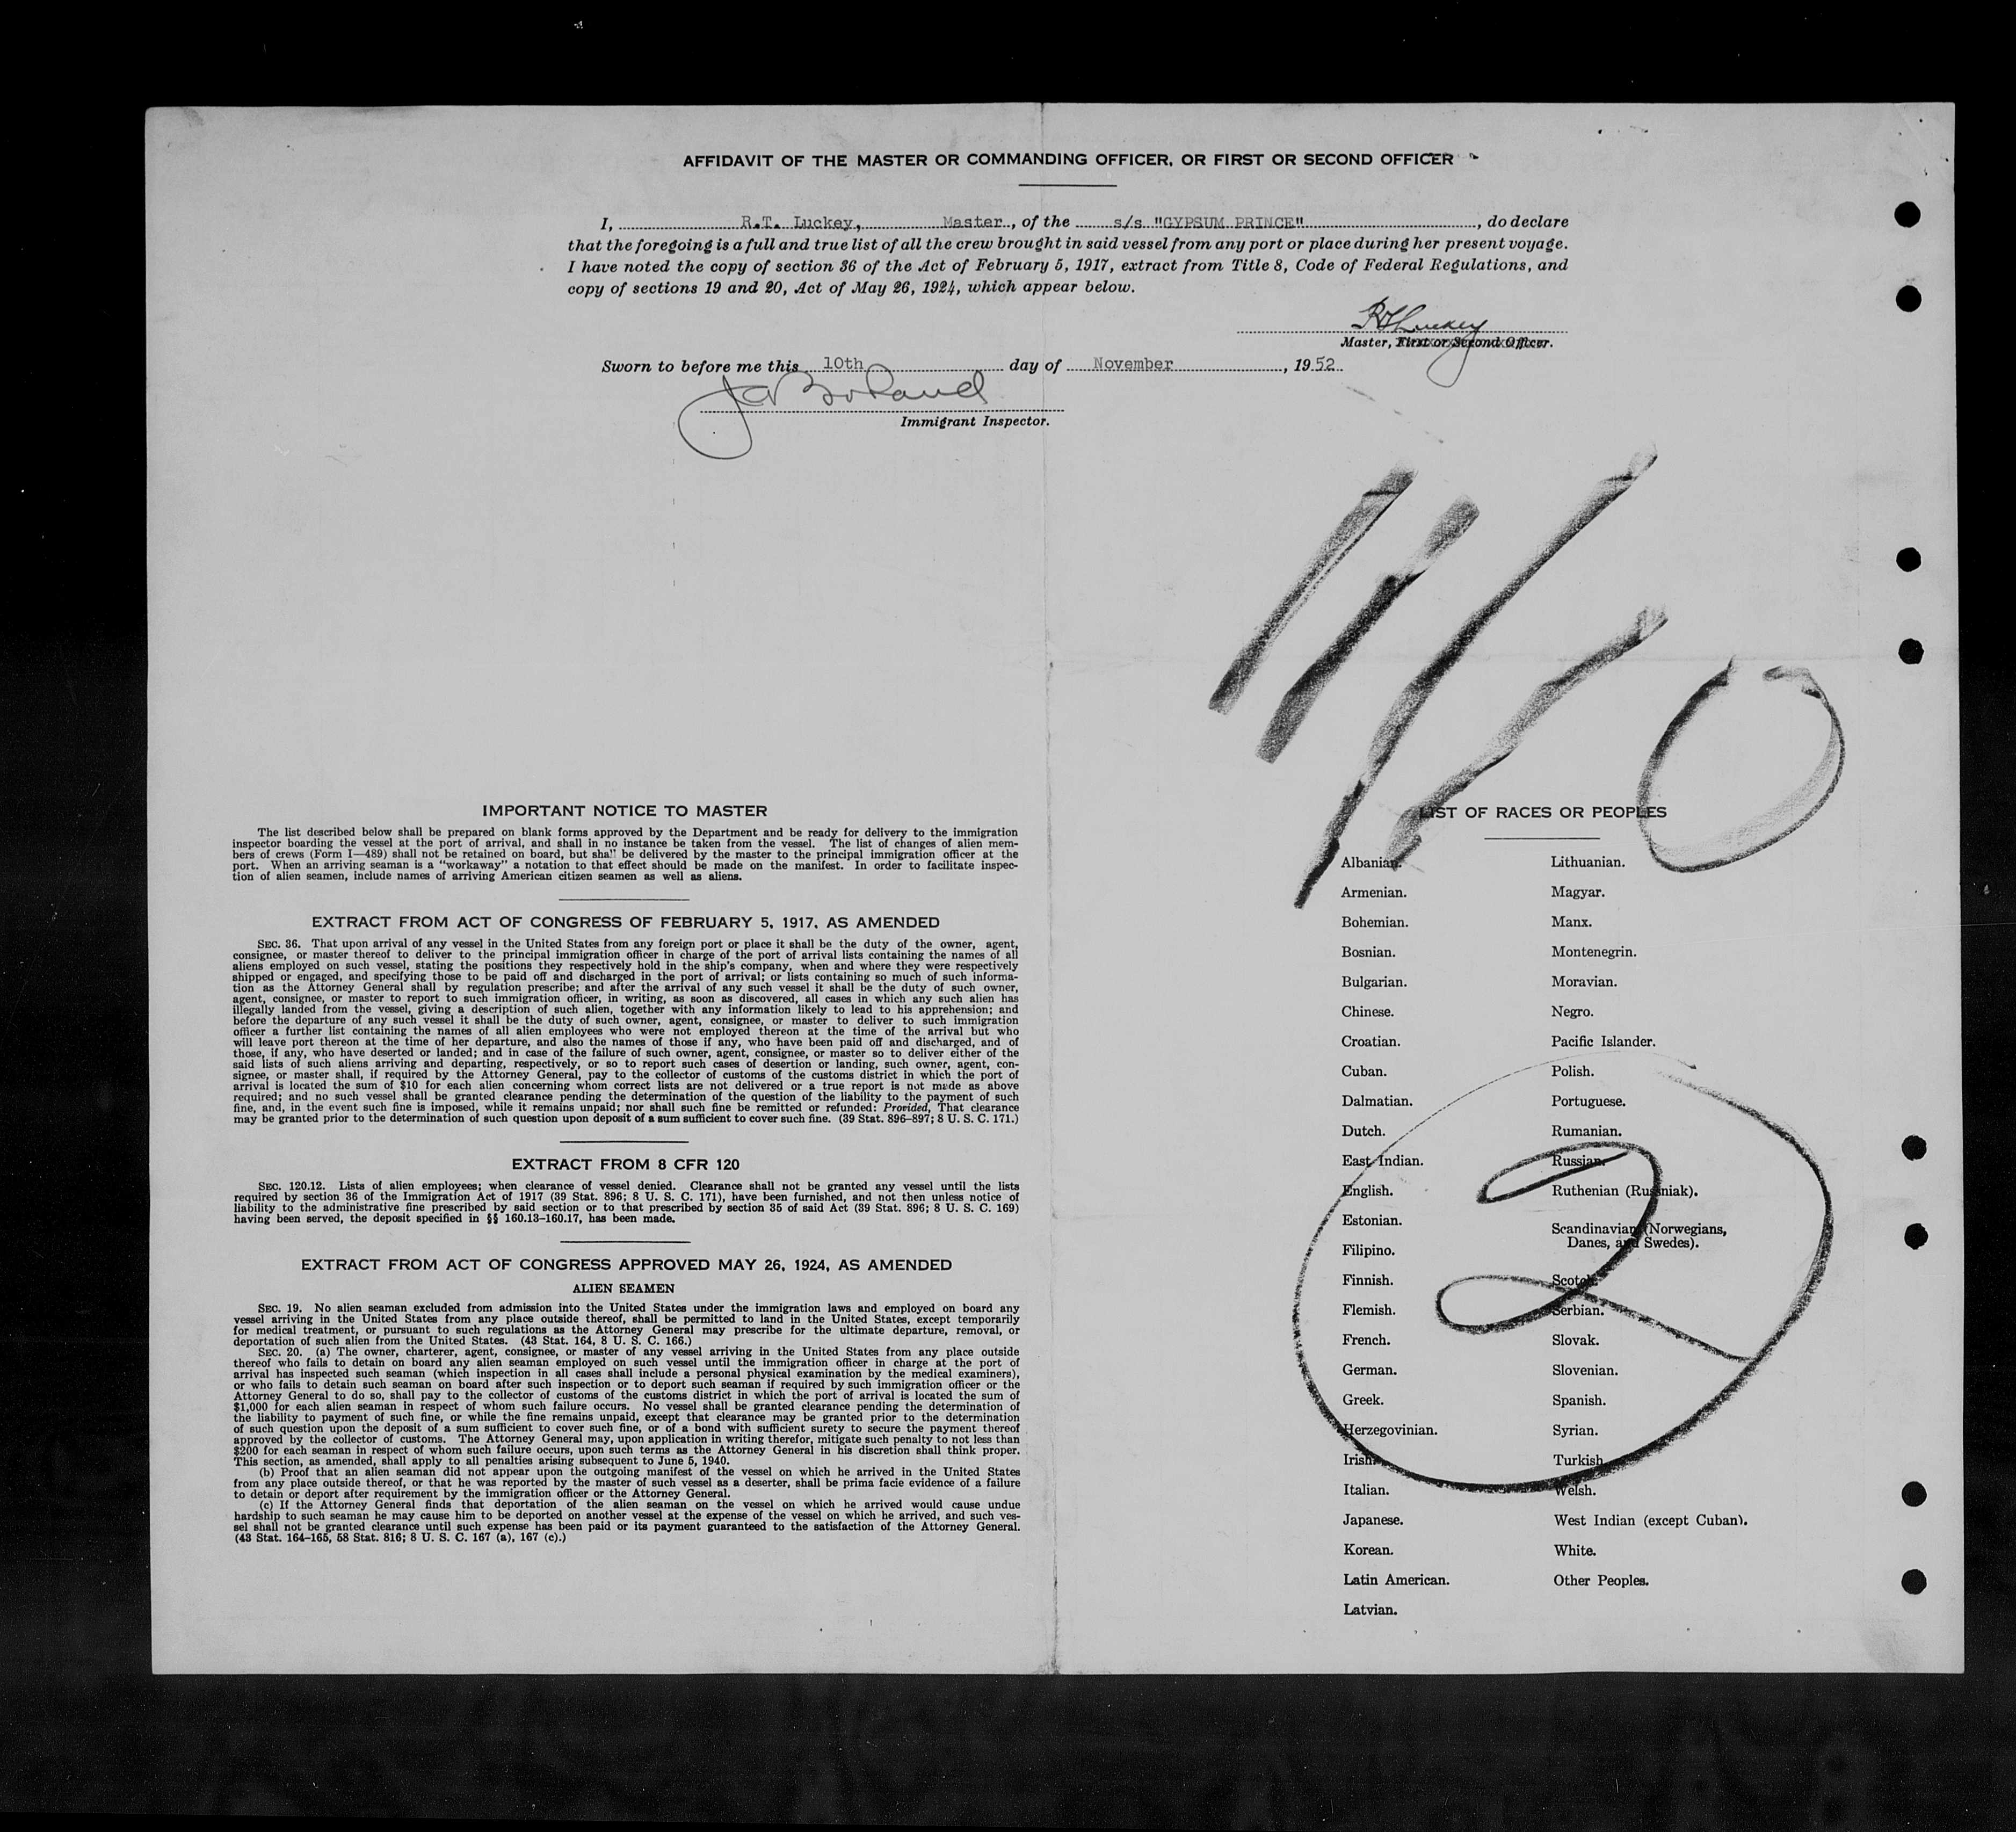 AFFIDAVIT OF THE MASTER OR COMMANDING OFFICER, OR FIRST OR SECOND OFFICER
I, R.T. Luckey, Master, of the s/s "GYPSUM PRINCE", do declare
that the foregoing is a full and true list of all the crew brought in said vessel from any port or place during her present voyage.
I have noted the copy of section 36 of the Act of February 5, 1917, extract from Title 8, Code of Federal Regulations, and
copy of sections 19 and 20, Act of May 26, 1924, which appear below.
RTLuckey
Master, First or Second Officer.
Sworn to before me this 10th day of November, 1952.
Immigrant Inspector.
11/10
IMPORTANT NOTICE TO MASTER
The list described below shall be prepared on blank forms approved by the Department and be ready for delivery to the immigration
inspector boarding the vessel at the port of arrival, and shall in no instance be taken from the vessel. The list of changes of alien mem-
bers of crews (Form I—489) shall not be retained on board, but shall be delivered by the master to the principal immigration officer at the
port. When an arriving seaman is a "workaway" a notation to that effect should be made on the manifest. In order to facilitate inspec-
tion of alien seamen, include names of arriving American citizen seamen as well as aliens.
EXTRACT FROM ACT OF CONGRESS OF FEBRUARY 5, 1917, AS AMENDED
SEC. 36. That upon arrival of any vessel in the United States from any foreign port or place it shall be the duty of the owner, agent,
consignee, or master thereof to deliver to the principal immigration officer in charge of the port of arrival lists containing the names of all
aliens employed on such vessel, stating the positions they respectively hold in the ship's company, when and where they were respectively
shipped or engaged, and specifying those to be paid off and discharged in the port of arrival; or lists containing so much of such informa-
tion as the Attorney General shall by regulation prescribe; and after the arrival of any such vessel it shall be the duty of such owner,
agent, consignee, or master to report to such immigration officer, in writing, as soon as discovered, all cases in which any such alien has
illegally landed from the vessel, giving a description of such alien, together with any information likely to lead to his apprehension; and
before the departure of any such vessel it shall be the duty of such owner, agent, consignee, or master to deliver to such immigration
officer a further list containing the names of all alien employees who were not employed thereon at the time of the arrival but who
will leave port thereon at the time of her departure, and also the names of those if any, who have been paid off and discharged, and of
those, if any, who have deserted or landed; and in case of the failure of such owner, agent, consignee, or master so to deliver either of the
said lists of such aliens arriving and departing, respectively, or so to report such cases of desertion or landing, such owner, agent, con-
signee, or master shall, if required by the Attorney General, pay to the collector of customs of the customs district in which the port of
arrival is located the sum of $10 for each alien concerning whom correct lists are not delivered or a true report is not made as above
required; and no such vessel shall be granted clearance pending the determination of the question of the liability to the payment of such
fine, and, in the event such fine is imposed, while it remains unpaid; nor shall such fine be remitted or refunded: Provided, That clearance
may be granted prior to the determination of such question upon deposit of a sum sufficient to cover such fine. (39 Stat. 896–897; 8 U. S. C. 171.)
EXTRACT FROM 8 CFR 120
SEC. 120.12. Lists of alien employees; when clearance of vessel denied. Clearance shall not be granted any vessel until the lists
required by section 36 of the Immigration Act of 1917 (39 Stat. 896; 8 U. S. C. 171), have been furnished, and not then unless notice of
liability to the administrative fine prescribed by said section or to that prescribed by section 35 of said Act (39 Stat. 896; 8 U. S. C. 169)
having been served, the deposit specified in §§ 160.13–160.17, has been made.
EXTRACT FROM ACT OF CONGRESS APPROVED MAY 26, 1924, AS AMENDED
ALIEN SEAMEN
SEC. 19. No alien seaman excluded from admission into the United States under the immigration laws and employed on board any
vessel arriving in the United States from any place outside thereof, shall be permitted to land in the United States, except temporarily
for medical treatment, or pursuant to such regulations as the Attorney General may prescribe for the ultimate departure, removal, or
deportation of such alien from the United States. (43 Stat. 164, 8 U. S. C. 166.)
SEC. 20. (a) The owner, charterer, agent, consignee, or master of any vessel arriving in the United States from any place outside
thereof who fails to detain on board any alien seaman employed on such vessel until the immigration officer in charge at the port of
arrival has inspected such seaman (which inspection in all cases shall include a personal physical examination by the medical examiners),
or who fails to detain such seaman on board after such inspection or to deport such seaman if required by such immigration officer or the
Attorney General to do so, shall pay to the collector of customs of the customs district in which the port of arrival is located the sum of
$1,000 for each alien seaman in respect of whom such failure occurs. No vessel shall be granted clearance pending the determination of
the liability to payment of such fine, or while the fine remains unpaid, except that clearance may be granted prior to the determination
of such question upon the deposit of a sum sufficient to cover such fine, or of a bond with sufficient surety to secure the payment thereof
approved by the collector of customs. The Attorney General may, upon application in writing therefor, mitigate such penalty to not less than
$200 for each seaman in respect of whom such failure occurs, upon such terms as the Attorney General in his discretion shall think proper.
This section, as amended, shall apply to all penalties arising subsequent to June 5, 1940.
(b) Proof that an alien seaman did not appear upon the outgoing manifest of the vessel on which he arrived in the United States
from any place outside thereof, or that he was reported by the master of such vessel as a deserter, shall be prima facie evidence of a failure
to detain or deport after requirement by the immigration officer or the Attorney General.
(c) If the Attorney General finds that deportation of the alien seaman on the vessel on which he arrived would cause undue
hardship to such seaman he may cause him to be deported on another vessel at the expense of the vessel on which he arrived, and such ves-
sel shall not be granted clearance until such expense has been paid or its payment guaranteed to the satisfaction of the Attorney General.
(43 Stat. 164–165, 58 Stat. 816; 8 U. S. C. 167 (a), 167 (c).)
LIST OF RACES OR PEOPLES
Albanian.
Armenian.
Bohemian.
Bosnian.
Bulgarian.
Chinese.
Croatian.
Cuban.
Dalmatian.
Dutch.
East Indian.
English.
Estonian.
Filipino.
Finnish.
Flemish.
French.
German.
Greek.
Herzegovinian.
Irish.
Italian.
Japanese.
Korean.
Latin American.
Latvian.
Lithuanian.
Magyar.
Manx.
Montenegrin.
Moravian.
Negro.
Pacific Islander.
Polish.
Portuguese.
Rumanian.
Russian.
Ruthenian (Russniak).
Scandinavian (Norwegians,
Danes, and Swedes).
Scotch.
Serbian.
Slovak.
Slovenian.
Spanish.
Syrian.
Turkish.
Welsh.
West Indian (except Cuban).
White.
Other Peoples.
2